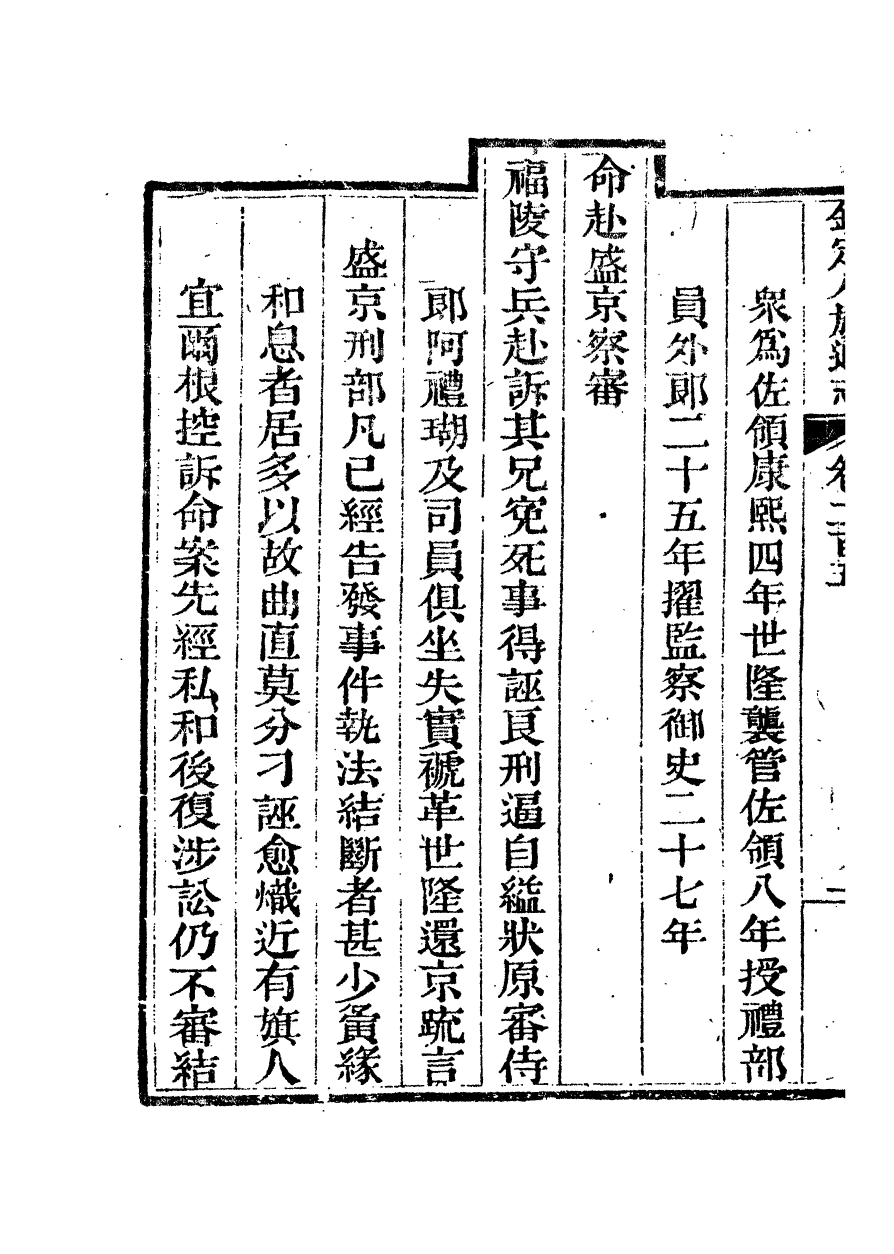 欽定八旗通志 卷二百五 二
衆爲佐領康熙四年世隆襲管佐領八年授禮部
員外郎二十五年擢監察御史二十七年
命赴盛京察審
福陵守兵赴訴其兄寃死事得誣良刑逼自縊狀原審侍
郎阿禮瑚及司員俱坐失實褫革世隆還京疏言
盛京刑部凡已經告發事件執法結斷者甚少夤緣
和息者居多以故曲直莫分刁誣愈熾近有旗人
宜爾根控訴命案先經私和後復涉訟仍不審結